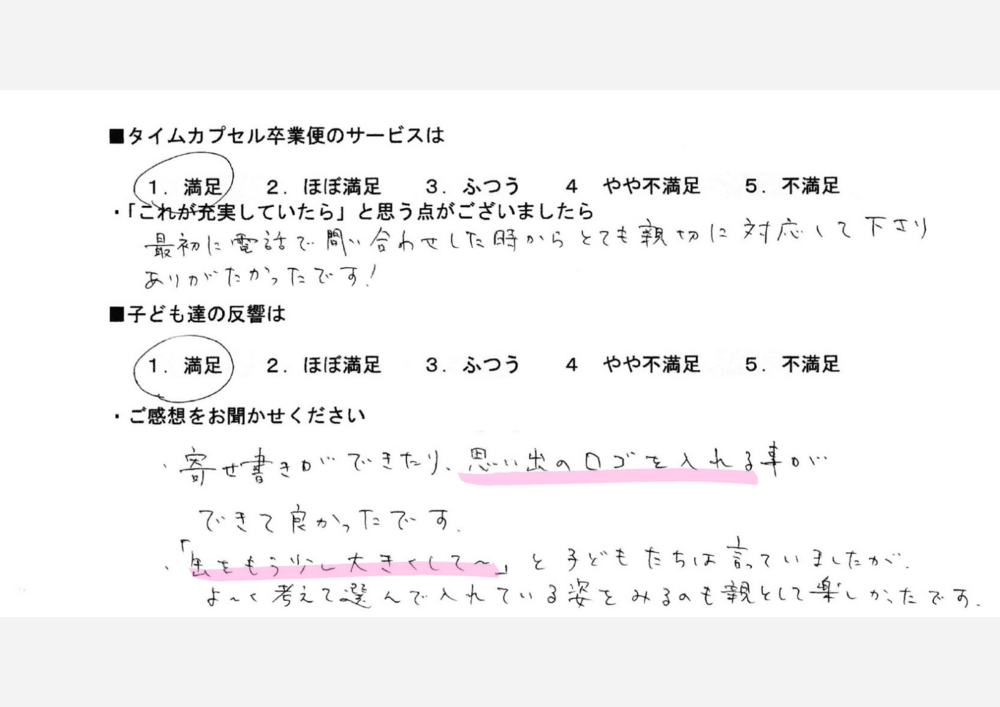 ■タイムカプセル卒業便のサービスは
1. 満足 2. ほぼ満足 3. ふつう 4 やや不満足 5. 不満足
・「これが充実していたら」と思う点がございましたら
最初に電話で問い合わせした時からとても親切に対応して下さり
ありがたかったです!
■子ども達の反響は
1. 満足 2. ほぼ満足 3. ふつう 4 やや不満足 5. 不満足
・ご感想をお聞かせください
・寄せ書きができたり、思い出のロゴを入れる事が
できて良かったです.
・「缶をもう少し大きくして〜」と子どもたちは言っていましたが.
よ〜く考えて選んで入れている姿をみるのも親として楽しかったです.